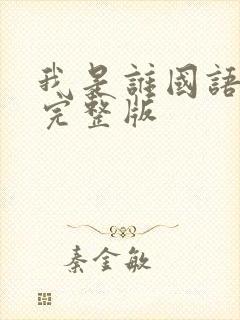 我是誰國語
完整版
秦金敏